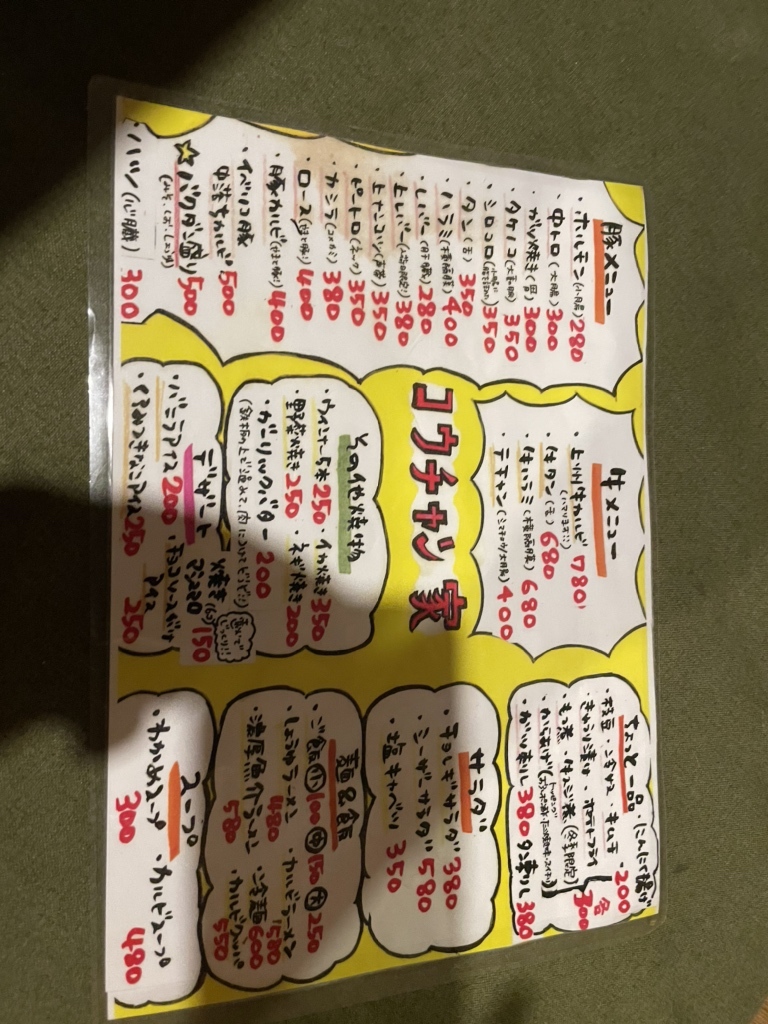 コウチャン家
豚メニュー
・ホルモン(小腸) 280
・中トロ(大腸) 300
・ガツ焼き(胃) 300
・タケノコ(大動脈) 350
・シロコロ 350
・タン(舌) 350
・ハラミ(横隔膜) 400
・レバー(肝臓) 280
・上レバー 380
・上ナンコツ(声帯) 350
・ピートロ(ネック) 350
・カシラ(コメカミ) 380
・ロース 400
・豚カルビ 400
・イベリコ豚
中落ちカルビ 500
☆バクダン盛り 500
・ハツ(心臓) 300
牛メニュー
・上州牛カルビ 780
(ハマリます!!)
・牛タン(舌) 680
・牛ハラミ(横隔膜) 680
・テチャン(シマチョウ/大腸) 400
その他焼物
・ウインナー5本 250 ・イカ焼き 350
・野菜焼き 250 ・ネギ焼き 200
・ガーリックバター 200
デザート
・バニラアイス 200
・くるみつききなこアイス 250
アイス 250
焼き
マシュマロ 150
ちょっと一品
・にんにく揚げ
・枝豆 ・キムチ ・200
・きゅうり漬け ・ポテトフライ
・もつ煮 ・牛スジ煮(冬季限定) 各300
・からあげ
・ガツ刺し 380 タン刺し 380
サラダ
・チョレギサラダ 380
・シーザーサラダ 580
・塩キャベツ 350
麺&飯
・ご飯 小100 中150 大250
・しょうゆラーメン 480 ・カルビラーメン 580
・濃厚魚介ラーメン 580 ・冷麺 600
・カルビクッパ 550
スープ
・わかめスープ 300
・カルビスープ 480